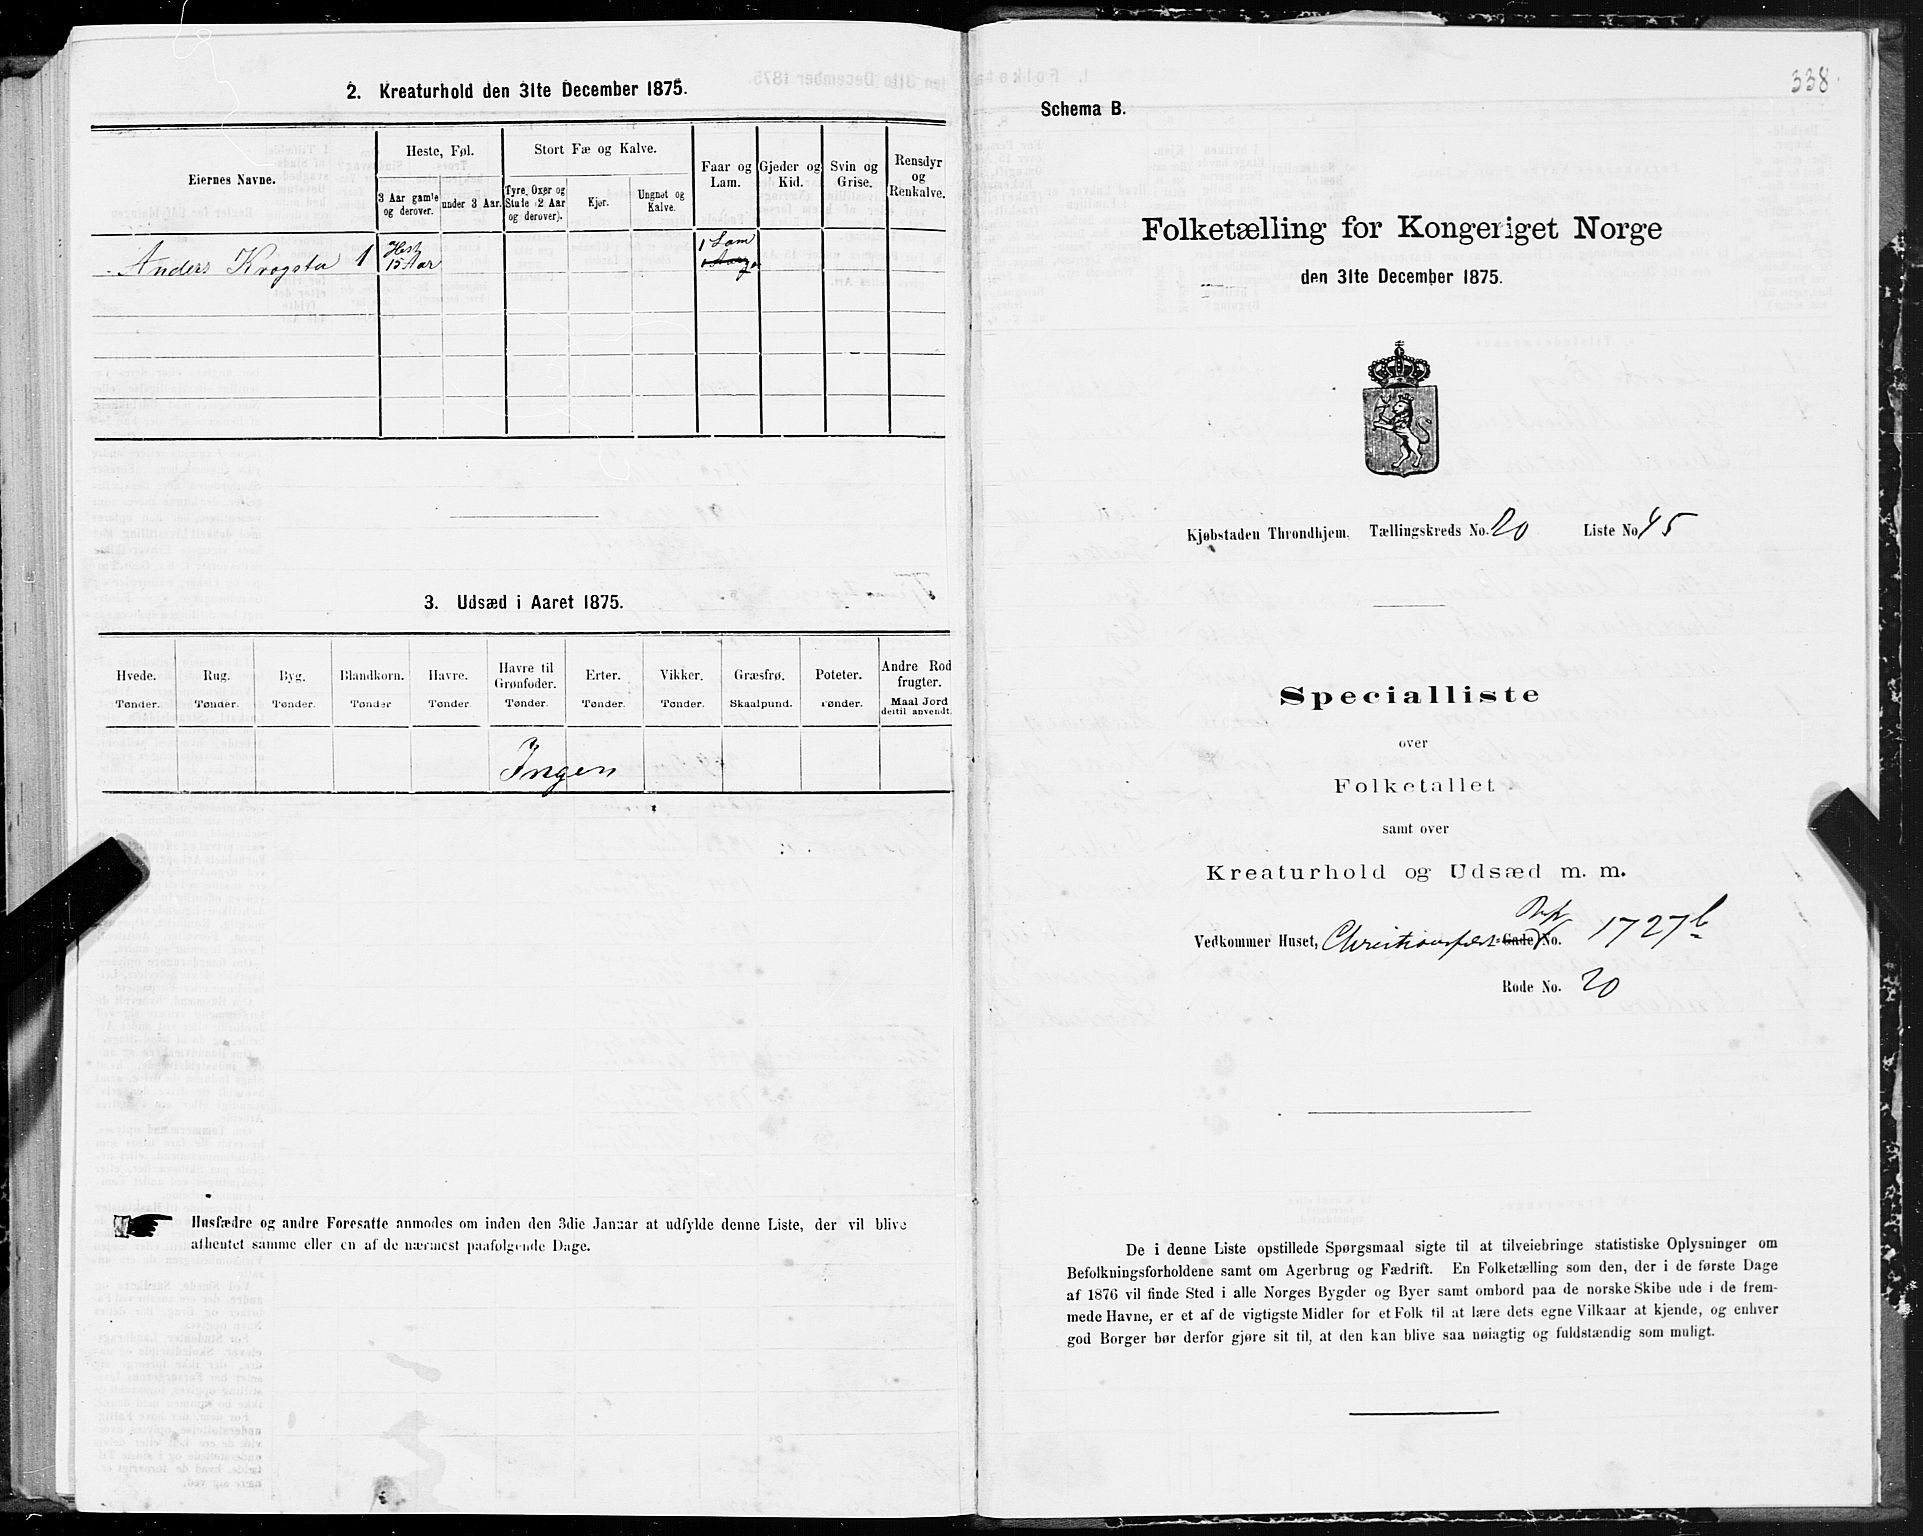 2. Kreaturhold den 31te December 1875.
Eiernes Navne.
Heste, Føl.
Stort Fæ og Kalve.
Faar og Lam.
Gjeder og Kid.
Svin og Grise.
Rensdyr og Renkalve.
3 Aar gamle og derover.
under 3 Aar.
Tyre, Oxer og Stude (2 Aar og derover).
Kjør.
Ungnøt og Kalve.
Anders Krogsta 1 Hest 15 Aar
1 Lam
3. Udsæd i Aaret 1875.
Hvede. Rug. Byg. Blandkorn. Havre. Havre til Grønfoder. Erter. Vikker. Græsfrø. Poteter. Andre Rodfrugter.
Tønder. Tønder. Tønder. Tønder Tønder. Tønder. Tønder. Tønder. Skaalpund. Tønder. Maal Jord dertil anvendt.
Ingen
Husfædre og andre Foresatte anmodes om inden den 3die Januar at udfylde denne Liste, der vil blive
afhentet samme eller en af de nærmest paafølgende Dage.
338.
Schema B.
Folketælling for Kongeriget Norge
den 31te December 1875.
Kjøbstaden Throndhjem. Tællingskreds No. 20 Liste No 45
Specialliste
over
Folketallet
samt over
Kreaturhold og Udsæd m. m.
Vedkommer Huset, Gade No. 1727b
Rode No. 20
De i denne Liste opstillede Spørgsmaal sigte til at tilveiebringe statistiske Oplysninger om
Befolkningsforholdene samt om Agerbrug og Fædrift. En Folketælling som den, der i de første Dage
af 1876 vil finde Sted i alle Norges Bygder og Byer samt ombord paa de norske Skibe ude i de frem-
mede Havne, er et af de vigtigste Midler for et Folk til at lære dets egne Vilkaar at kjende, og enhver
god Borger bør derfor gjøre sit til, at den kan blive saa nøiagtig og fuldstændig som muligt.